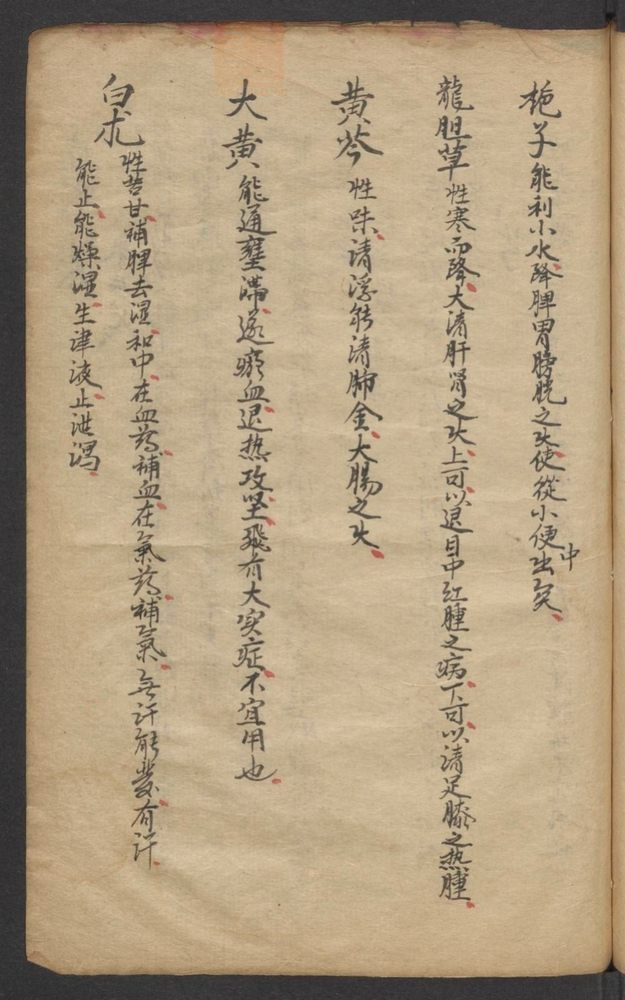 栀子能利小水降脾胃膀胱之火使從小便中出矣
龍胆草性寒而降大清肝肾之火上可以退目中红腫之病下可以清足膝之热腫
黄芩性味清浮能清肺金大腸之火
大黄能通壅滞逐瘀血退热攻坚飛有大实症不宜用也
白术性苦甘補脾去湿和中在血药補血在氣药補氣無汗能發有汗
能止能燥湿生津液止泄瀉